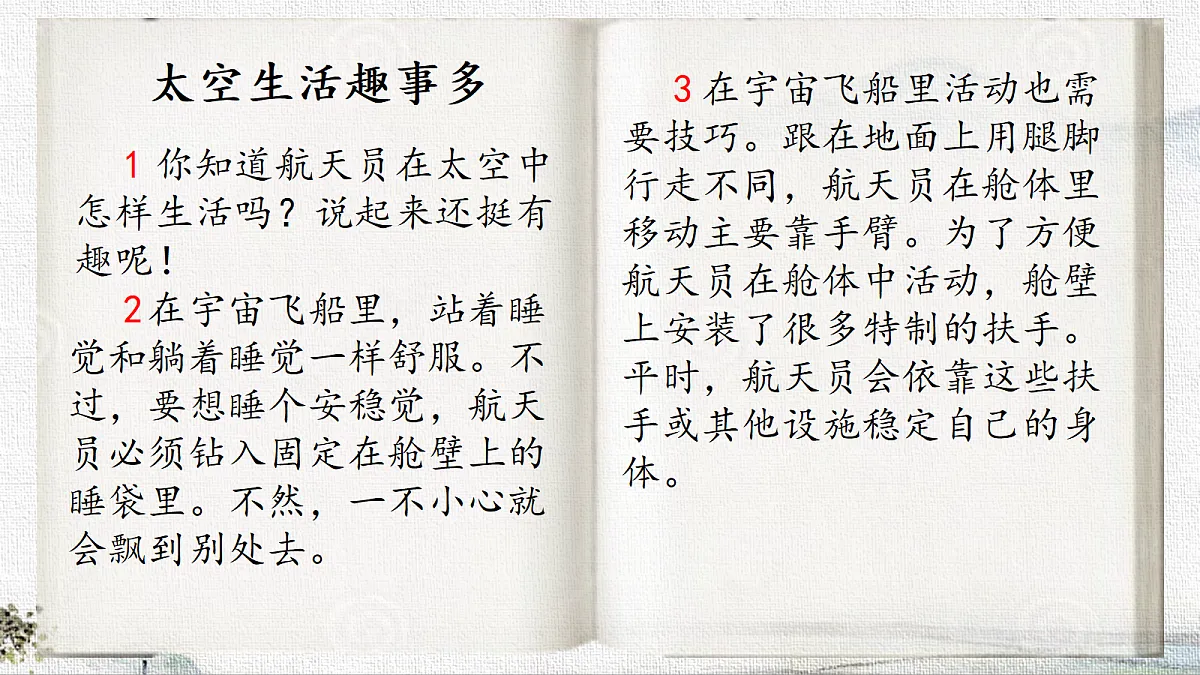 太空生活趣事多
1 你知道航天员在太空中
怎样生活吗？说起来还挺有
趣呢！
2 在宇宙飞船里，站着睡
觉和躺着睡觉一样舒服。不
过，要想睡个安稳觉，航天
员必须钻入固定在舱壁上的
睡袋里。不然，一不小心就
会飘到别处去。
3 在宇宙飞船里活动也需
要技巧。跟在地面上用腿脚
行走不同，航天员在舱体里
移动主要靠手臂。为了方便
航天员在舱体中活动，舱壁
上安装了很多特制的扶手。
平时，航天员会依靠这些扶
手或其他设施稳定自己的身
体。